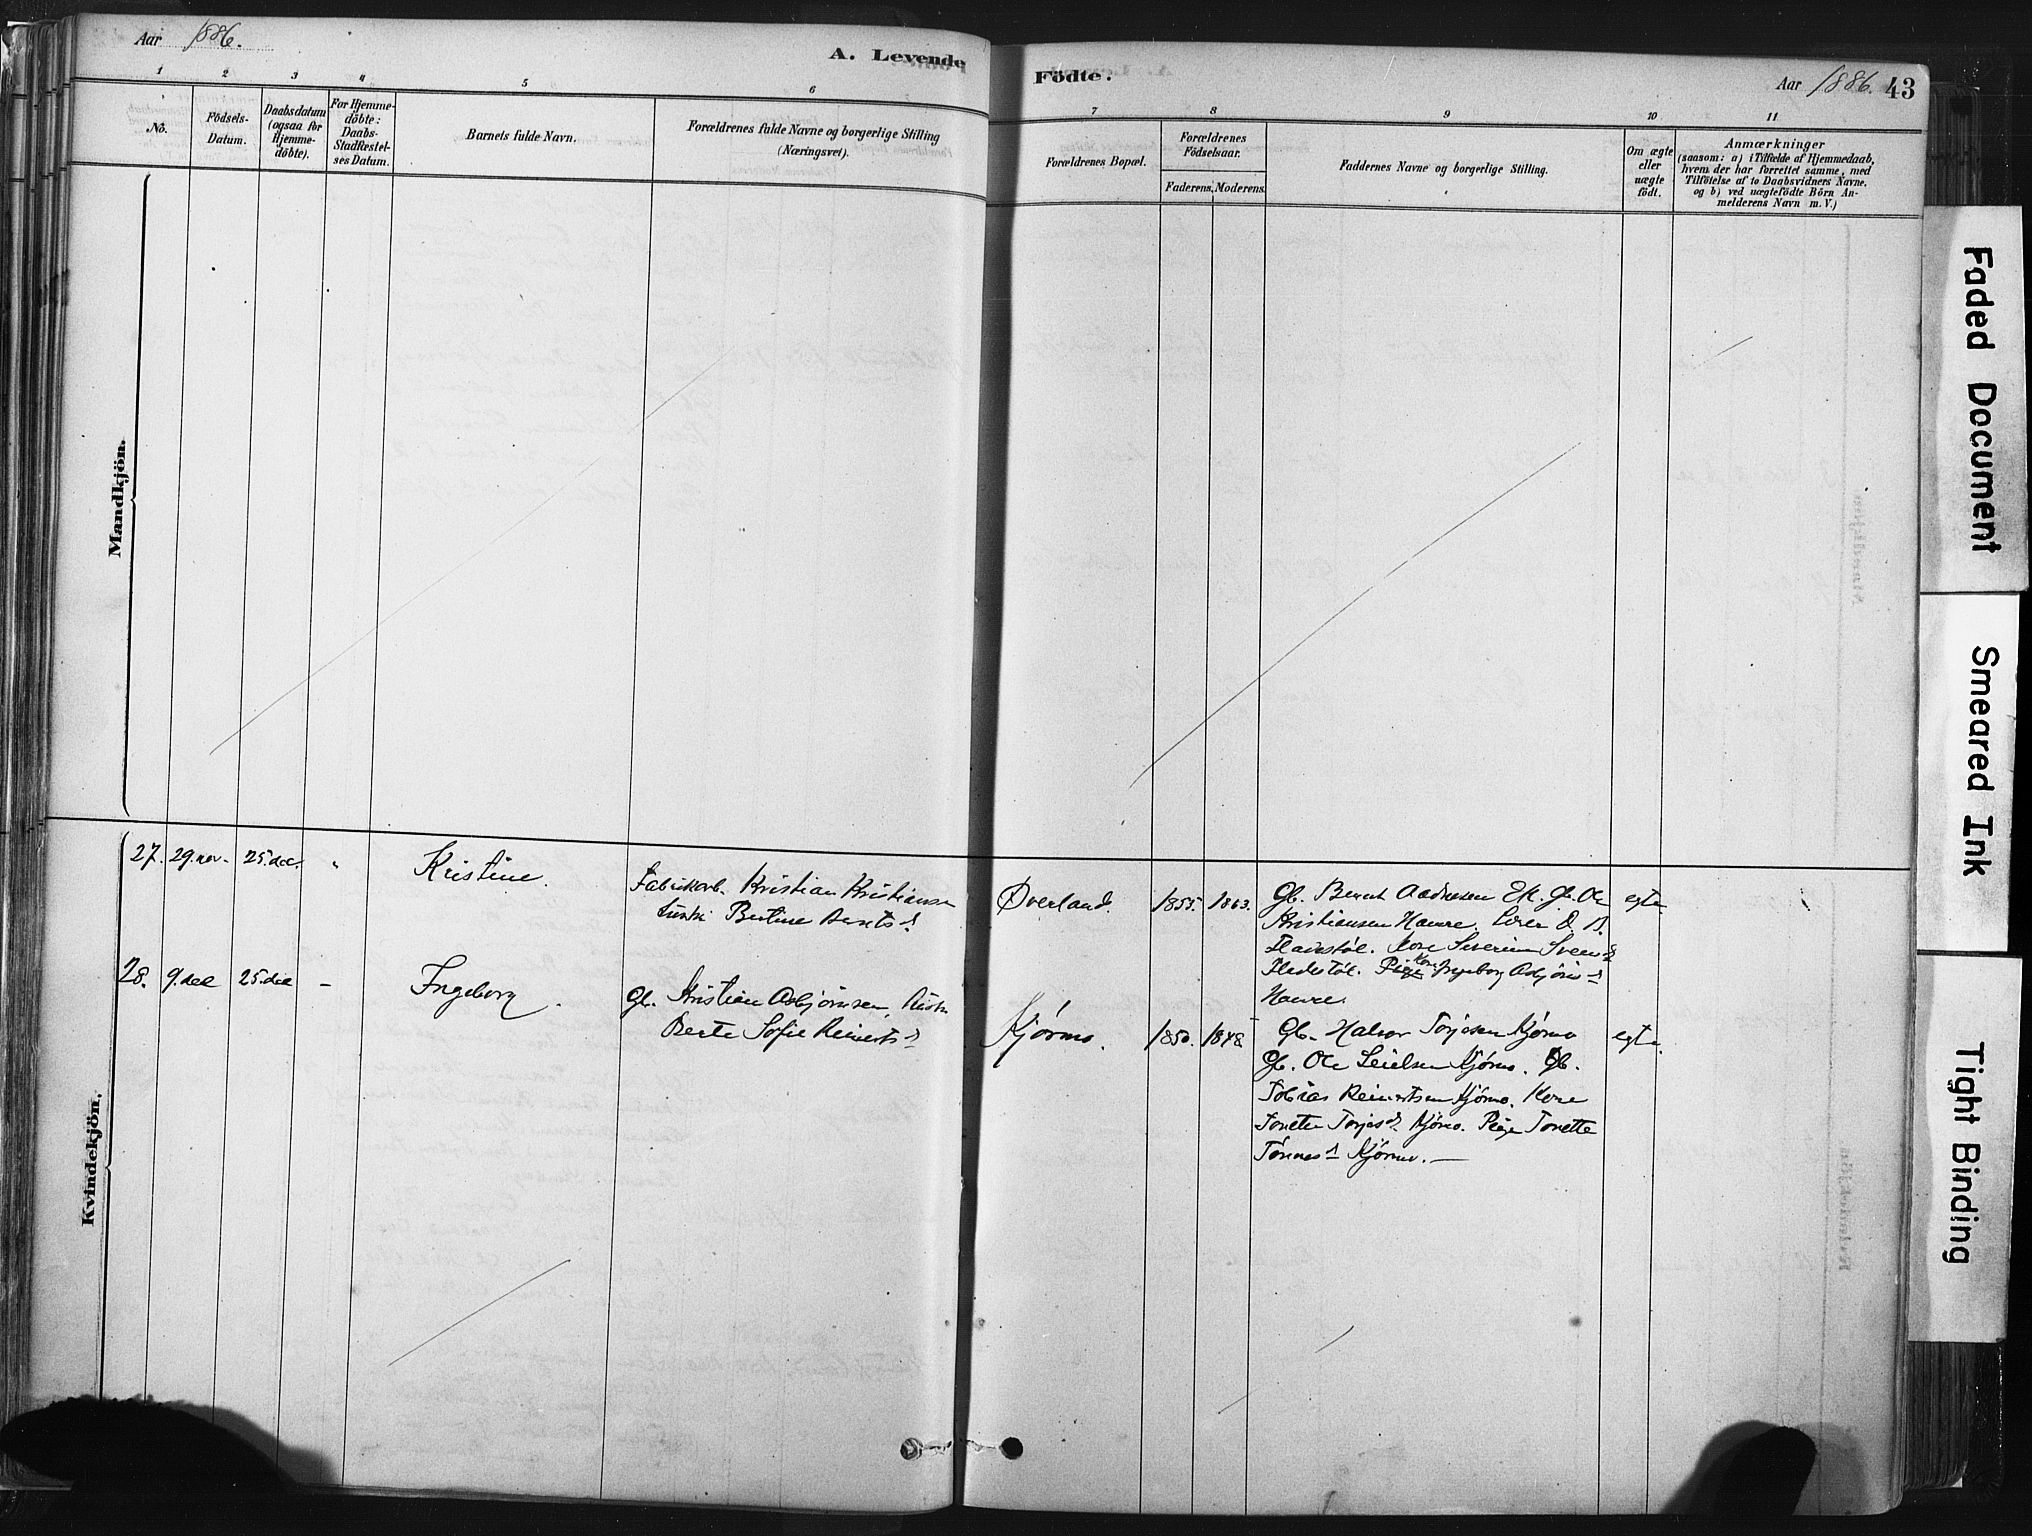 Aar 1886.
A. Levende Födte.
Aar 1886. 43
1 2 3 4 5 6 7 8 9 10 11
No.
Födsels-
Datum.
Daabsdatum
(ogsaa for
Hjemme-
döbte).
For Hjemme-
döbte:
Daabs-
Stadfæstel-
ses Datum.
Barnets fulde Navn.
Forældrenes fulde Navne og borgerlige Stilling
(Næringsvei).
Forældrenes Bopæl.
Forældrenes
Födselsaar.
Faderens. Moderens.
Faddernes Navne og borgerlige Stilling.
Om ægte
eller
uægte
födt.
Anmærkninger
(saasom: a) i Tilfælde af Hjemmedaab,
hvem der har forrettet samme, med
Tilföielse af to Daabsvidners Navne,
og b) ved uægtefödte Börn An-
melderens Navn m. V.)
Mandkjön.
Kvindekjön.
27. 29. nov. 25. dec. "
Kristine.
Fabrikarb. Kristian Kristiansen
Hustru Bertine
Øverland. 1855. 1863.
Gb. Bernt Aadnesen Gb. Ole
Kristiansen Haure.
Kone Severine Svends
Kone Ingeborg Asbjörns
Haure.
egte.
28. 9. dec 25. dec -
Ingeborg.
Gb. Kristian Asbjörnsen, Hustru
Berte Sofie Reinerts
Kjørmo. 1850. 1848
Gb. Halvor Torjesen Kjørmo
Gb. Ole Kjørmo. Gb.
Tobias Reinertsen Kjørmo. Kone
Tonette Torjesd. Kjørmo. Pige Tonette
Tønnesd Kjørmo. —
egte.
Faded Document
Smeared Ink
Tight Binding